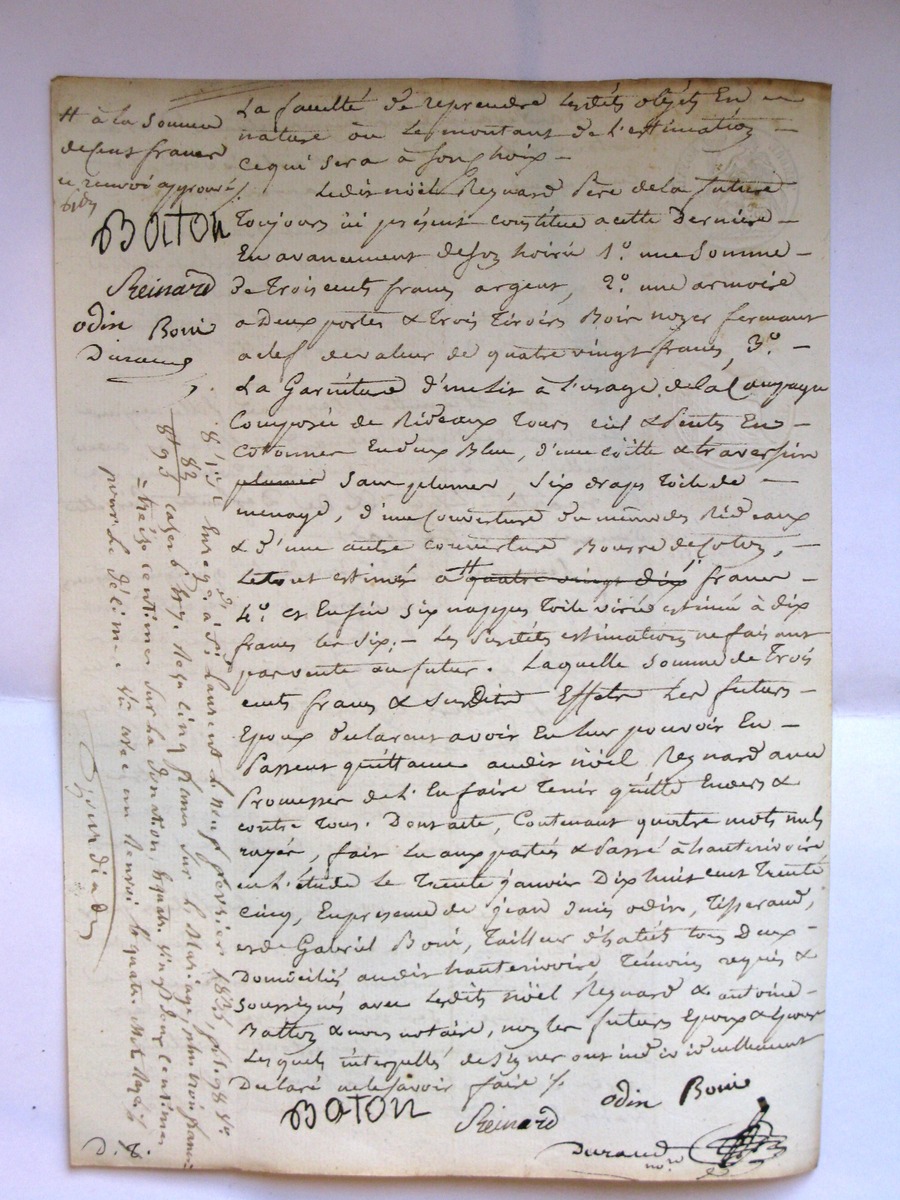 # à la somme
de cent francs
ce renvoi approuvé
BatON
Reinard
odin Boni
Durand
La faculté de reprendre lesdits objets En
nature ou le montant de l'estimation
ce qui sera à son choix
Ledit nöel Reynard Père de la future
Toujours ici présent constitue a cette Derniere
En avancement de son hoirie 1º une somme
de trois cents francs argent, 2º une armoire
a Deux portes & trois Tiroirs Bois noyer fermant
a clef de valeur de quatre vingt francs, 3º
La Garniture d'un lit à l'usage de la Campagne
Composée de Rideaux Tours ciel & Pentes En
cotonne Endeux Bleu, d'une coïtte & traversin
plumes sans plumes, six draps Toile de
menage, d'une couverture du même des Rideaux
& d'une autre couverture Bourre de coton,
Le tout estimé a # quatre vingt dix francs
4º et Enfin six nappes Toile estimé à dix
francs les six; Les susdits estimations ne faisant
pas vente au futur. Laquelle somme de Trois
cents francs & susdits Effets les futurs
Epoux declarent avoir En leur pouvoir En
Passent quittance audit nöel Reynard avec
Promesse de l'En faire Tenir quitte Envers &
contre Tous. Dont acte, Contenant quatre mots nuls
rayés, fait lu aux parties & Passé à hauterivoire
en l'étude Le Trente janvier Dix huit cent Trente
Cinq, En presence de jean odin, Tisserand,
et de Gabriel Boni, Tailleur d'habits tous Deux
Domiciliés audit hauterivoire Témoins requis &
soussignés avec lesdits nöel Reynard & antoine
Batton & nous notaire, non les futurs Epoux & Epouse
Lesquels interpellés de signer ont individuellement
Declaré ne le savoir faire ./.
BatON
Reinard
odin Boni
Durand
nore
Enregé à St Laurent le neuf fevrier 1835,
cases 6 & 7. Reçu cinq francs sur le Mariage, plus trois francs
treize centimes sur la Donation, & quatre vingt deux centimes
pour le Décime. Vu avec un Renvoi & quatre Mots Rayés
D. 8.